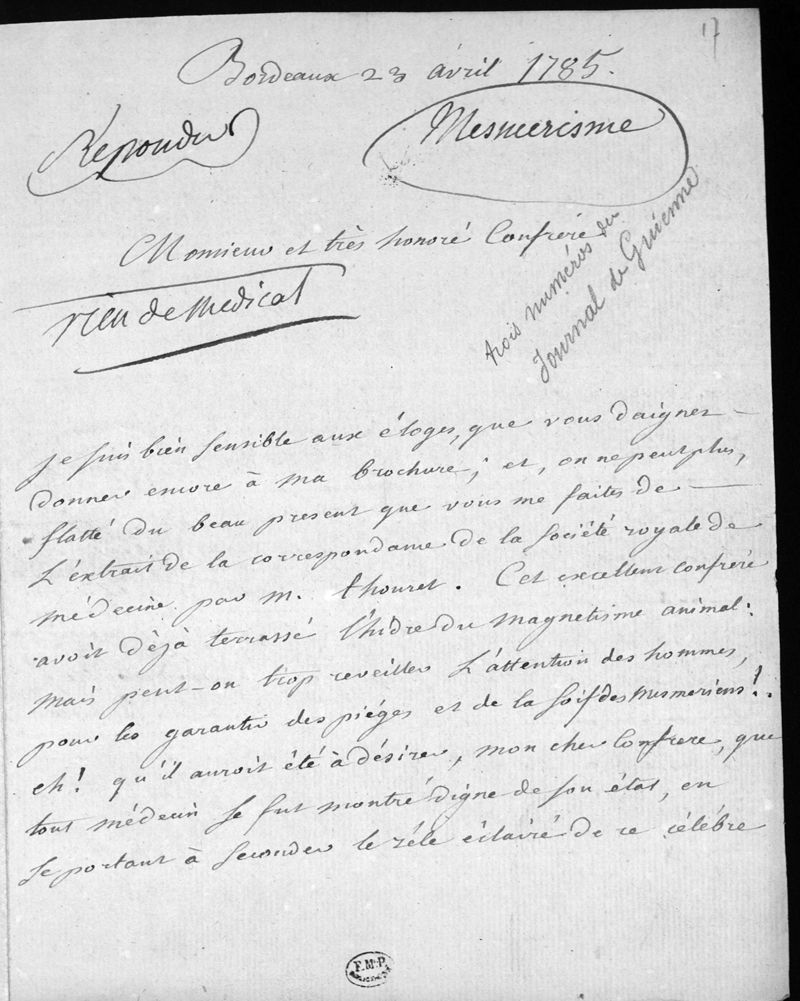 17
Bordeaux 23 avril 1785.
Repondu
Mesmerisme
Monsieur et très honoré Confrere
trois numéros du
Journal de Guienne
rien de Medical
je suis bien sensible aux éloges, que vous daignez
donner encore à ma brochure; et, on ne peut plus,
flatté du beau present que vous me faites de
L'extrait de la correspondame de la société royale de
médecine par m. thouret. Cet excellent confrére
avoit déjà terrassé l'hidre du magnetisme animal:
mais peut-on trop reveiller L'attention des hommes,
pour les garantir des piéges et de la soif des Mesmeriens!.
eh! qu'il auroit été à désirer, mon cher Confrere, que
tout médecin se fut montré digne de son état, en
se portant à seconder le zéle éclairé de ce célébre
F.M.P.